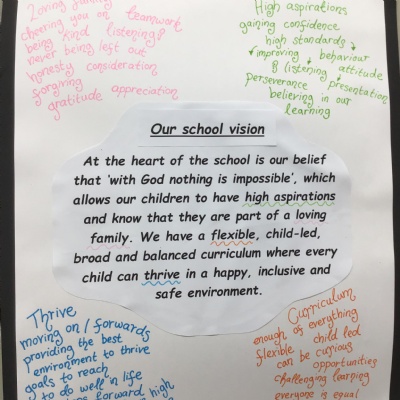 Loving family
cheering you on teamwork
being kind listening
never being left out
honesty consideration
forgiving
gratitude appreciation
High aspirations
gaining confidence
high standards
improving behaviour
& listening attitude
perseverance presentation
believing in our
learning
Our school vision
At the heart of the school is our belief
that 'with God nothing is impossible', which
allows our children to have high aspirations
and know that they are part of a loving
family. We have a flexible, child-led,
broad and balanced curriculum where every
child can thrive in a happy, inclusive and
safe environment.
Thrive
moving on / forwards
providing the best
environment to thrive
goals to reach
to do well in life
forward high
Curriculum
enough of everything
flexible child led
can be curious
opportunities
challenging learning
everyone is equal